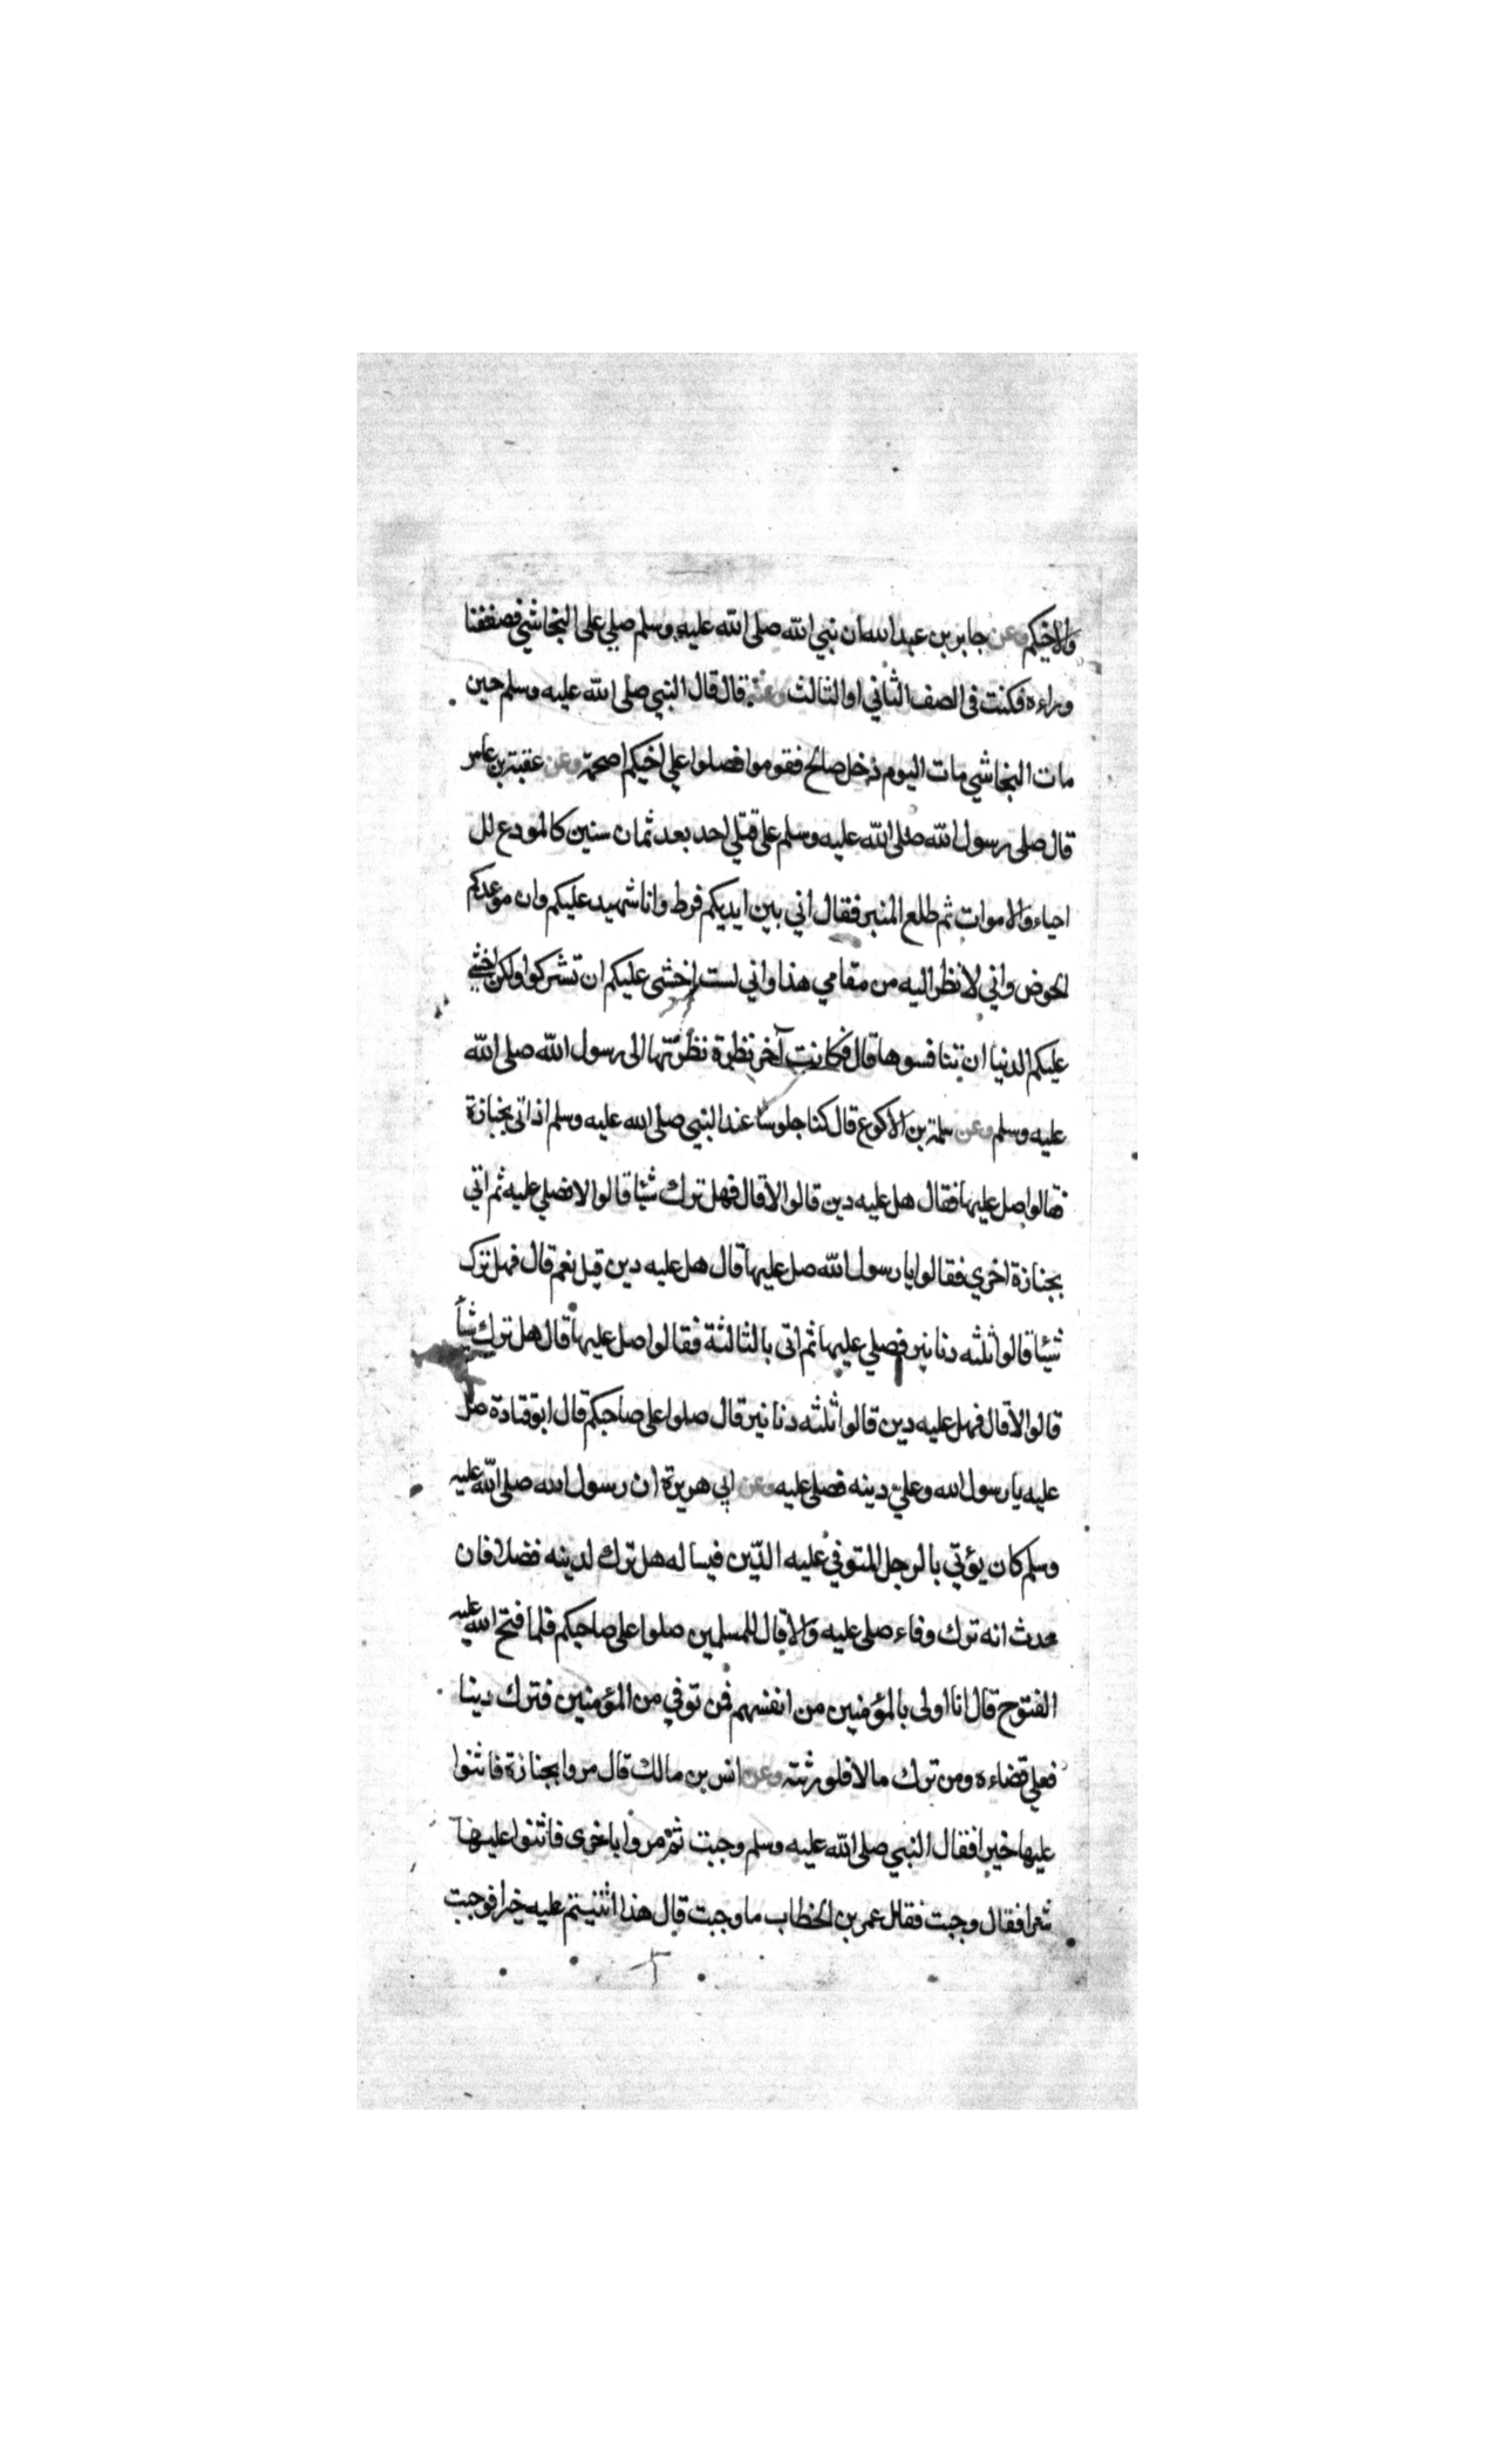 ولاخيكم وعن جابر بن عبد الله ان نبي الله صلى الله عليه وسلم صلي على النجاشي فصففنا
وراءه فكنت في الصف الثاني او الثالث وعنه قال قال النبي صلى الله عليه وسلم حين
مات النجاشي مات اليوم رجل صالح فقوموا فصلوا علي اخيكم اصحمة وعن عقبة بن عامر
قال صلى رسول الله صلى الله عليه وسلم على قتلي احد بعد ثمان سنين كالمودع لل
احياء والاموات ثم طلع المنبر فقال اني بين ايديكم فرط وانا شهيد عليكم وان موعدكم
الحوض واني لانظر اليه من مقامي هذا واني لست اخشى عليكم ان تشركوا ولكن اخشي
عليكم الدنيا ان تنافسوها قال فكانت آخر نظرة نظرتها الى رسول الله صلى الله
عليه وسلم وعن سلمة بن الاكوع قال كنا جلوسا عند النبي صلى الله عليه وسلم اذ اتى بجنازة
فقالوا صل عليها فقال هل عليه دين قالوا لا قال فهل ترك شيئا قالوا لا فصلي عليه ثم اتي
بجنازة اخري فقالوا يا رسول الله صل عليها قال هل عليه دين قيل نعم قال فهل ترك
شيئا قالوا ثلثه دنانير فصلي عليها ثم اتى بالثالثة فقالوا صل عليها قال هل ترك شيأ
قالوا لا قال فهل عليه دين قالوا ثلثه دنانير قال صلوا على صاحبكم قال ابو قتادة صل
عليه يا رسول الله وعلي دينه فصلى عليه وعن ابي هريرة ان رسول الله صلى الله عليه
وسلم كان يؤتي بالرجل المتوفي عليه الدّين فيساله هل ترك لدينه فضلا فان
حدث انه ترك وفاء صلى عليه والا قال للمسلمين صلوا على صاحبكم فلما فتح الله عليه
الفتوح قال انا اولى بالمؤمنين من انفسهم فمن توفي من المؤمنين فترك دينا
فعلي قضاءه ومن ترك مالا فلورثته وعن انس بن مالك قال مروا بجنازة فاثنوا
عليها خيرا فقال النبي صلى الله عليه وسلم وجبت ثم مروا باخرى فاثنوا عليها
شرا فقال وجبت فقال عمر بن الخطاب ما وجبت قال هذا اثنيتم عليه خيرا فوجبت